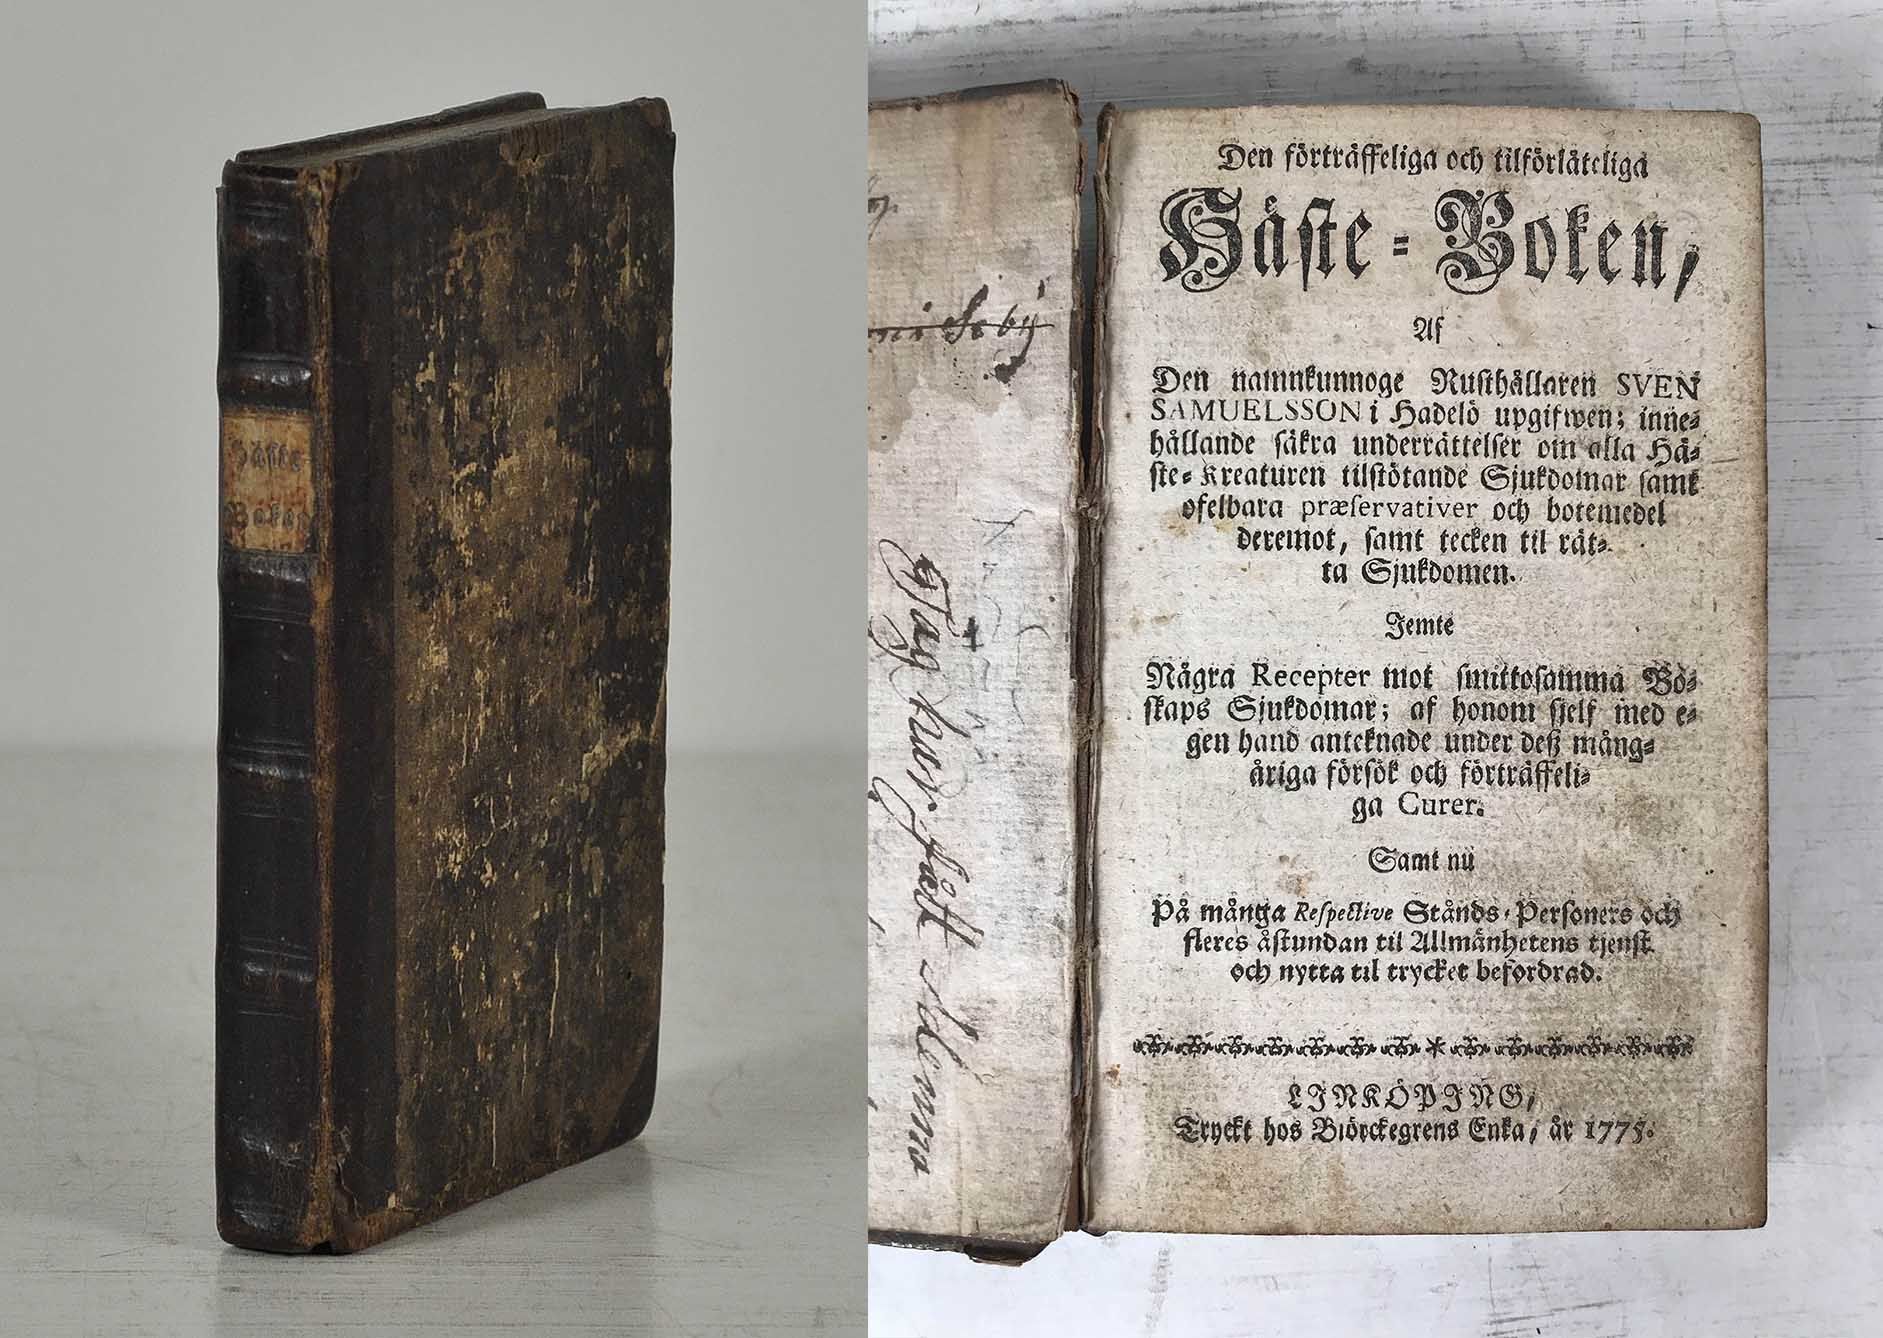 Häste
Boken
Den förträffeliga och tilförlåteliga
Häste-Boken,
Af
Den namnkunnoge Rusthållaren SVEN
SAMUELSSON i Hadelö upgifwen; inne-
hållande säkra underrättelser om alla Hä-
ste-Kreaturen tilstötande Sjukdomar samt
ofelbara præservativer och botemedel
deremot, samt tecken til rät-
ta Sjukdomen.
Jemte
Några Recepter mot smittosamma Bo-
skaps Sjukdomar; af honom sjelf med e-
gen hand anteknade under deß mång-
åriga försök och förträffeli-
ga Curer.
Samt nu
På många Respective Stånds-Personers och
fleres åstundan til Allmänhetens tjenst
och nytta til trycket befordrad.
LINKÖPING,
Tryckt hos Biörckegrens Enka, år 1775.